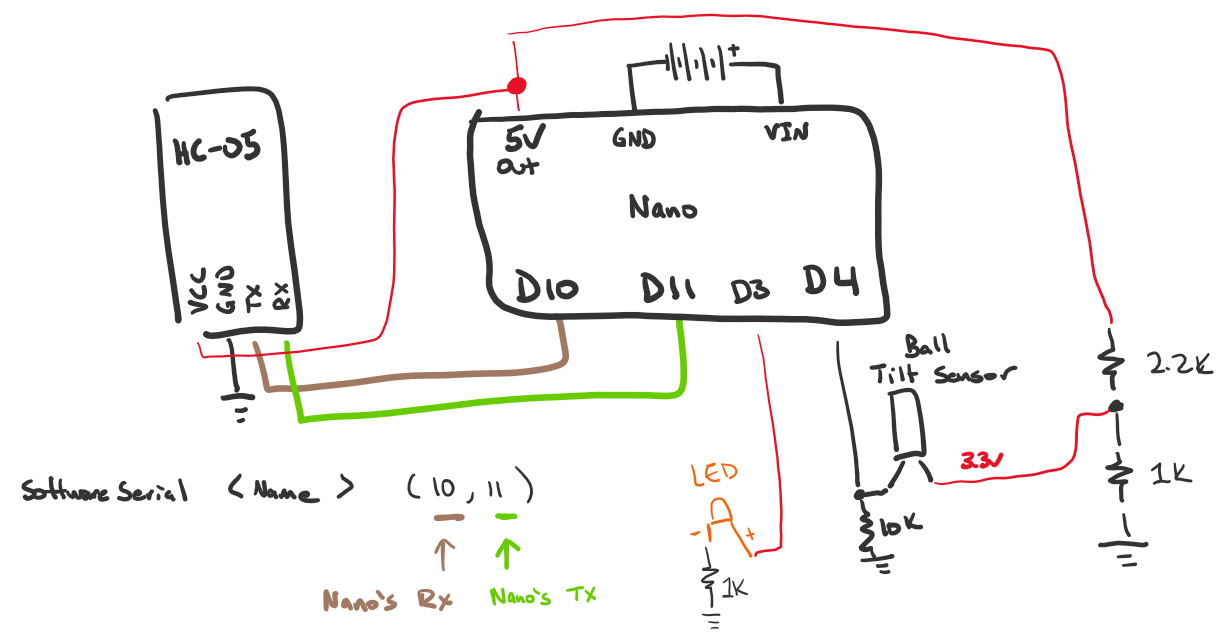 HC-05
VCC
GND
TX
RX
+
5V
out
GND
VIN
Nano
D10
D11
D3
D4
Ball
Tilt Sensor
2.2K
3.3V
1K
10K
LED
-
+
1K
Software Serial <Name> (10, 11)
Nano's Rx
Nano's TX